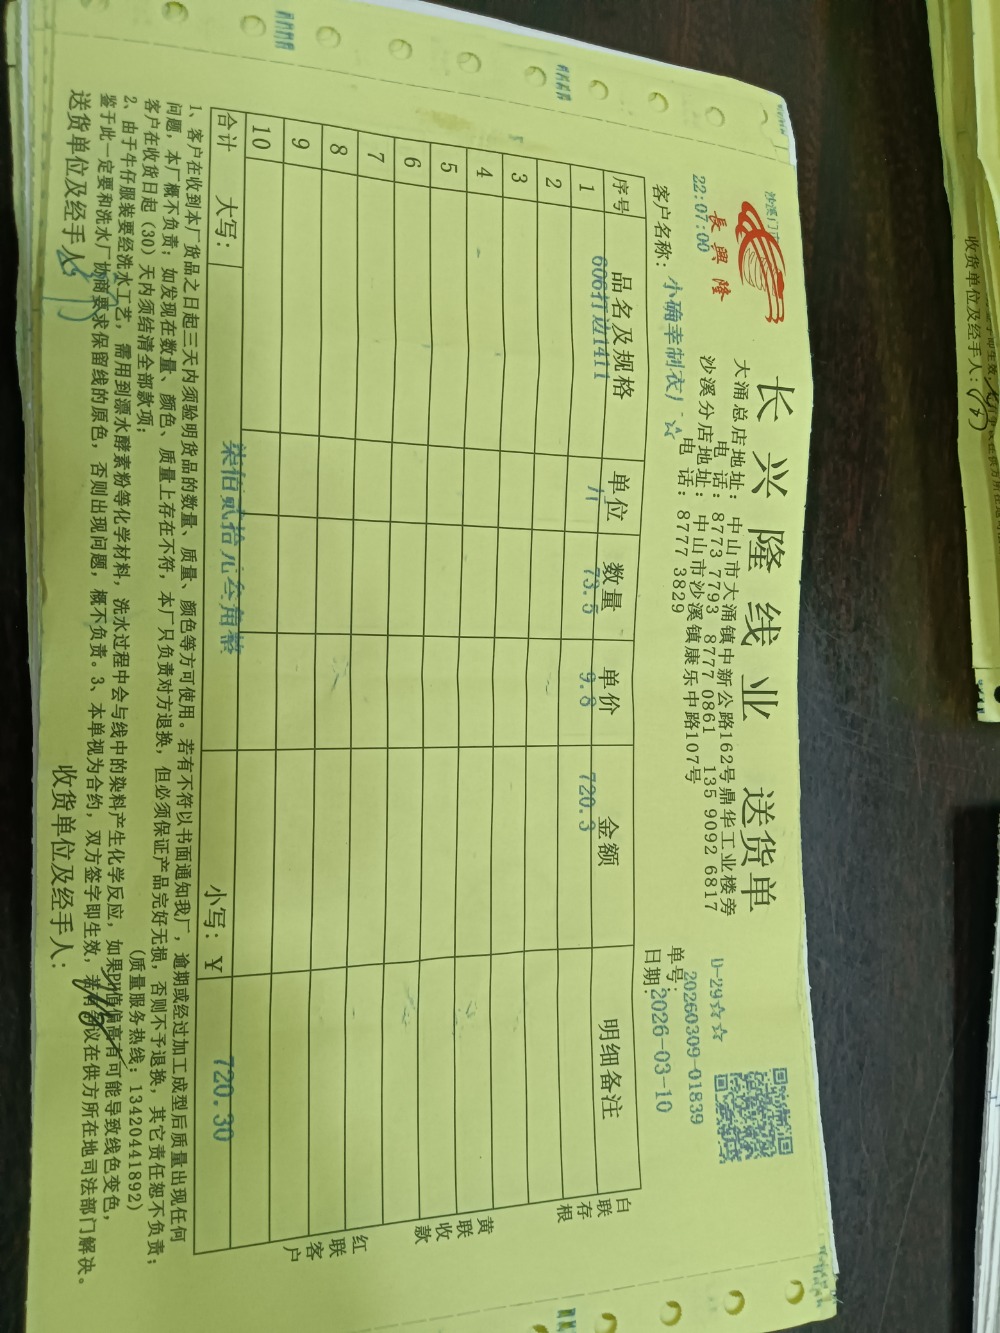 沙溪门市
22:07:00
長興隆
长兴隆线业 送货单
大涌总店地址：中山市大涌镇中新公路162号鼎华工业楼旁
电 话：8773 7793 8777 0861 135 9092 6817
沙溪分店地址：中山市沙溪镇康乐中路107号
电 话：8777 3829
D-29☆☆
单号：20260309-01839
客户名称：小确幸制衣厂-☆
日期：2026-03-10
序号 品名及规格 单位 数量 单价 金额 明细备注
1 606打边1411 73.5 9.8 720.3
2
3
4
5
6
7
8
9
10
合计 大写：柒佰贰拾元叁角整 小写：¥ 720.30
白联存根
黄联收款
红联客户
1、客户在收到本厂货品之日起三天内须验明货品的数量、质量、颜色等方可使用。若有不符以书面通知我厂，逾期或经过加工成型后质量出现任何
问题，本厂概不负责；如发现在数量、颜色、质量上存在不符，本厂只负责对方退换，但必须保证产品完好无损，否则不予退换，其它责任恕不负责；
客户在收货日起（30）天内须结清全部款项；
（质量服务热线：13420441892）
2、由于牛仔服装要经洗水工艺，需用到漂水酵素粉等化学材料，洗水过程中会与线中的染料产生化学反应，如果PH值偏高有可能导致线色变色，
鉴于此一定要和洗水厂协商要求保留线的原色，否则出现问题，概不负责。3、本单视为合约，双方签字即生效，若有争议在供方所在地司法部门解决。
送货单位及经手人：
收货单位及经手人：
收货单位及经手人：